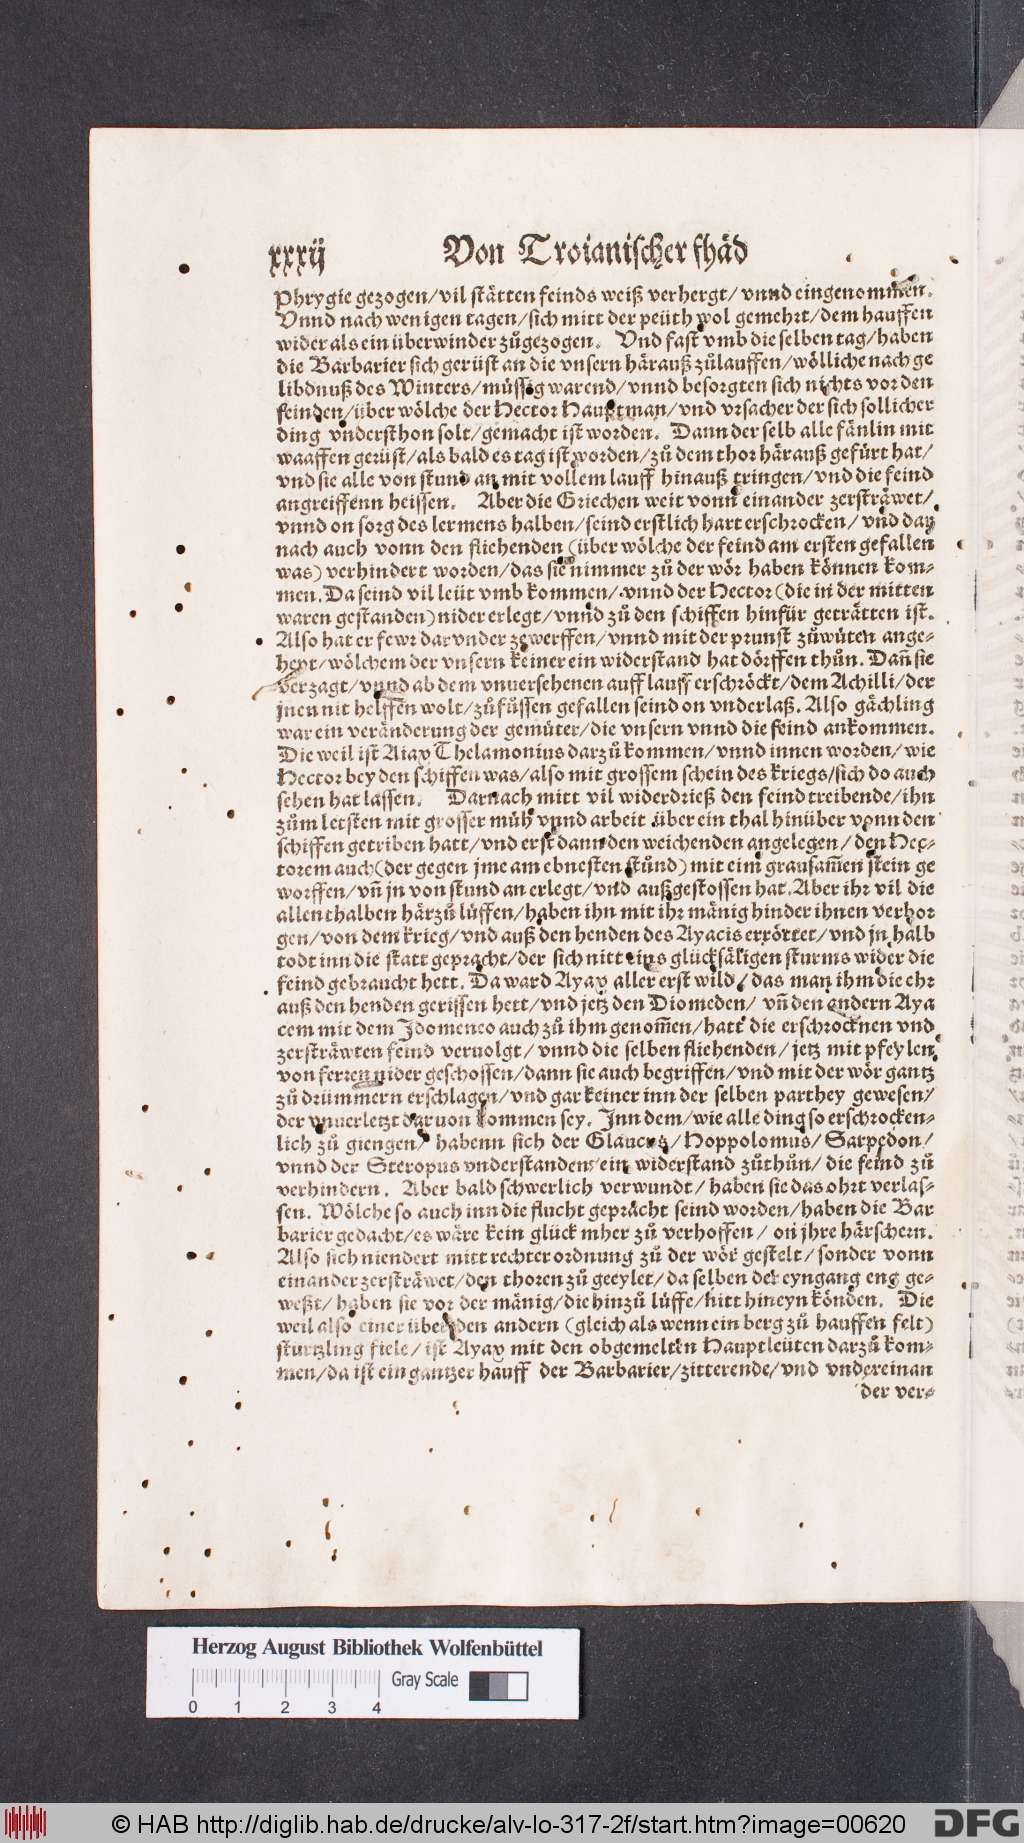 xxxij Von Troianischer fhäd
Phrygie gezogen/vil stätten feinds weiß verhergt/ vnnd eingenommen.
Vnnd nach wenigen tagen/sich mitt der peüth wol gemehrt/dem hauffen
wider als ein überwinder zůgezogen. Vnd fast vmb die selben tag/haben
die Barbarier sich gerüst an die vnsern härauß zůlauffen/wölliche nach ge
libdnuß des Winters/müssig warend/vnnd besorgten sich nichts vor den
feinden/über wölche der Hector Hauptman/vnd vrsacher der sich sollicher
ding vndersthon solt/gemacht ist worden. Dann der selb alle fänlin mit
waaffen gerüst/als bald es tag ist worden/zů dem thor härauß gefürt hat/
vnd sie alle von stund an mit vollem lauff hinauß tringen/vnd die feind
angreiffenn heissen. Aber die Griechen weit vonn einander zersträwet/
vnnd on sorg des lermens halben/seind erstlich hart erschrocken/ vnd dar
nach auch vonn den fliehenden (über wölche der feind am ersten gefallen
was) verhindert worden/das sie nimmer zů der wör haben können kom-
men. Da seind vil leüt vmb kommen/vnnd der Hector (die in der mitten
waren gestanden) nider erlegt/vnnd zů den schiffen hinfür geträtten ist.
Also hat er fewr darvnder zewerffen/vnnd mit der prunst zůwüten ange-
hept/wölchem der vnsern keiner ein widerstand hat dörffen thůn. Dañ sie
verzagt/vnnd ab dem vnuersehenen auff lauff erschröckt/dem Achilli/der
jnen nit helffen wolt/zůfůssen gefallen seind on vnderlaß. Also gächling
war ein veränderung der gemüter/die vnsern vnnd die feind ankommen.
Die weil ist Aiax Thelamonius darzů kommen/vnnd innen worden/wie
Hector bey den schiffen was/also mit grossem schein des kriegs/sich do auch
sehen hat lassen. Darnach mitt vil widerdrieß den feind treibende/ihn
zům letsten mit grosser müh vnnd arbeit über ein thal hinüber vonn den
schiffen getriben hatt/vnd erst dann den weichenden angelegen/den Hec-
torem auch (der gegen jme am ebnesten stůnd) mit eim grausam̃en stein ge
worffen/vñ jn von stund an erlegt/vnd außgestossen hat. Aber ihr vil die
allenthalben härzů lüffen/haben ihn mit ihr mänig hinder ihnen verbor
gen/von dem krieg/vnd auß den henden des Ayacis erröttet/vnd jn halb
todt inn die statt gepracht/der sich nitt eins glücksäligen sturms wider die
feind gebraucht hett. Da ward Ayax aller erst wild/das man ihm die ehr
auß den henden gerissen hett/vnd jetz den Diomeden/ vñ den andern Aya
cem mit dem Idomeneo auch zů ihm genom̃en/hatt die erschrocknen vnd
zersträwten feind veruolgt/vnnd die selben fliehenden/jetz mit pfeylen
von ferren nider geschossen/dann sie auch begriffen/vnd mit der wör gantz
zů drümmern erschlagen/vnd gar keiner inn der selben parthey gewesen/
der vnuerletzt daruon kommen sey. Inn dem/wie alle ding so erschrocken-
lich zů giengen/ habenn sich der Glaucus/Hoppolomus/Sarpedon/
vnnd der Steropus vnderstanden/ein widerstand zůthůn/die feind zů
verhindern. Aber bald schwerlich verwundt/haben sie das ohrt verlas-
sen. Wölche so auch inn die flucht gepracht seind worden/haben die Bar
barier gedacht/es wäre kein glück mher zů verhoffen/ on jhre härschern.
Also sich niendert mitt rechter ordnung zů der wör gestelt/sonder vonn
einander zersträwet/den thoren zů geeylet/da selben der eyngang eng ge-
weßt/haben sie vor der mänig/die hinzů lüffe/nitt hineyn könden. Die
weil also einer über den andern (gleich als wenn ein berg zů hauffen felt)
sturtzling fiele/ ist Ayax mit den obgemelten Hauptleüten darzů kom-
men/da ist ein gantzer hauff der Barbarier/zitterende/vnd vndereinan
der ver-
Herzog August Bibliothek Wolfenbüttel
Gray Scale
0 1 2 3 4
© HAB http://diglib.hab.de/drucke/alv-lo-317-2f/start.htm?image=00620 DFG